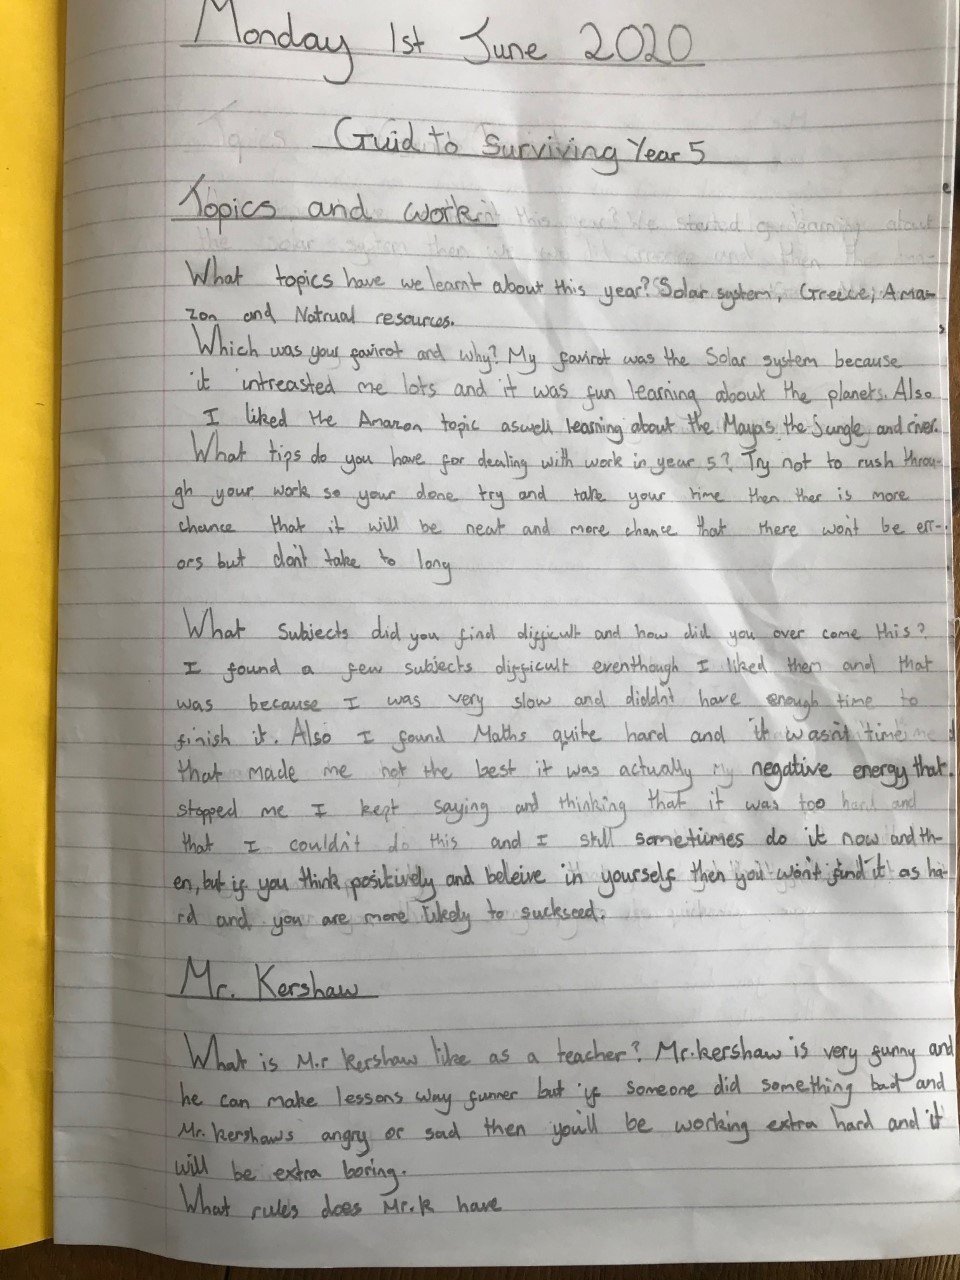 Monday 1st June 2020
Guid to Surviving Year 5
Topics and work
What topics have we learnt about this year? Solar system, Greice, Ama-
zon and Natrual resources.
Which was your favirot and why? My favirot was the Solar system because
it intreasted me lots and it was fun learning about the planets. Also
I liked the Amazon topic aswell learning about the Mayas the jungle and river.
What tips do you have for dealing with work in year 5? Try not to rush throu-
gh your work so your done try and take your time then ther is more
chance that it will be neat and more chance that there won't be err-
ors but don't take to long
What subjects did you find difficult and how did you over come this?
I found a few subjects difficult eventhough I liked them and that
was because I was very slow and diddn't have enough time to
finish it. Also I found Maths quite hard and it wasn't time
that made me not the best it was actually my negative energy that
stopped me I kept saying and thinking that it was too hard and
that I couldn't do this and I still sometiimes do it now and th-
en, but if you think positively and beleive in yourself then you won't find it as ha-
rd and you are more likely to suckseed.
Mr. Kershaw
What is M.r Kershaw like as a teacher? Mr.kershaw is very funny and
he can make lessons way funner but if someone did something bad and
Mr. kershaws angry or sad then you'll be working extra hard and it
will be extra boring.
What rules does Mr.k have